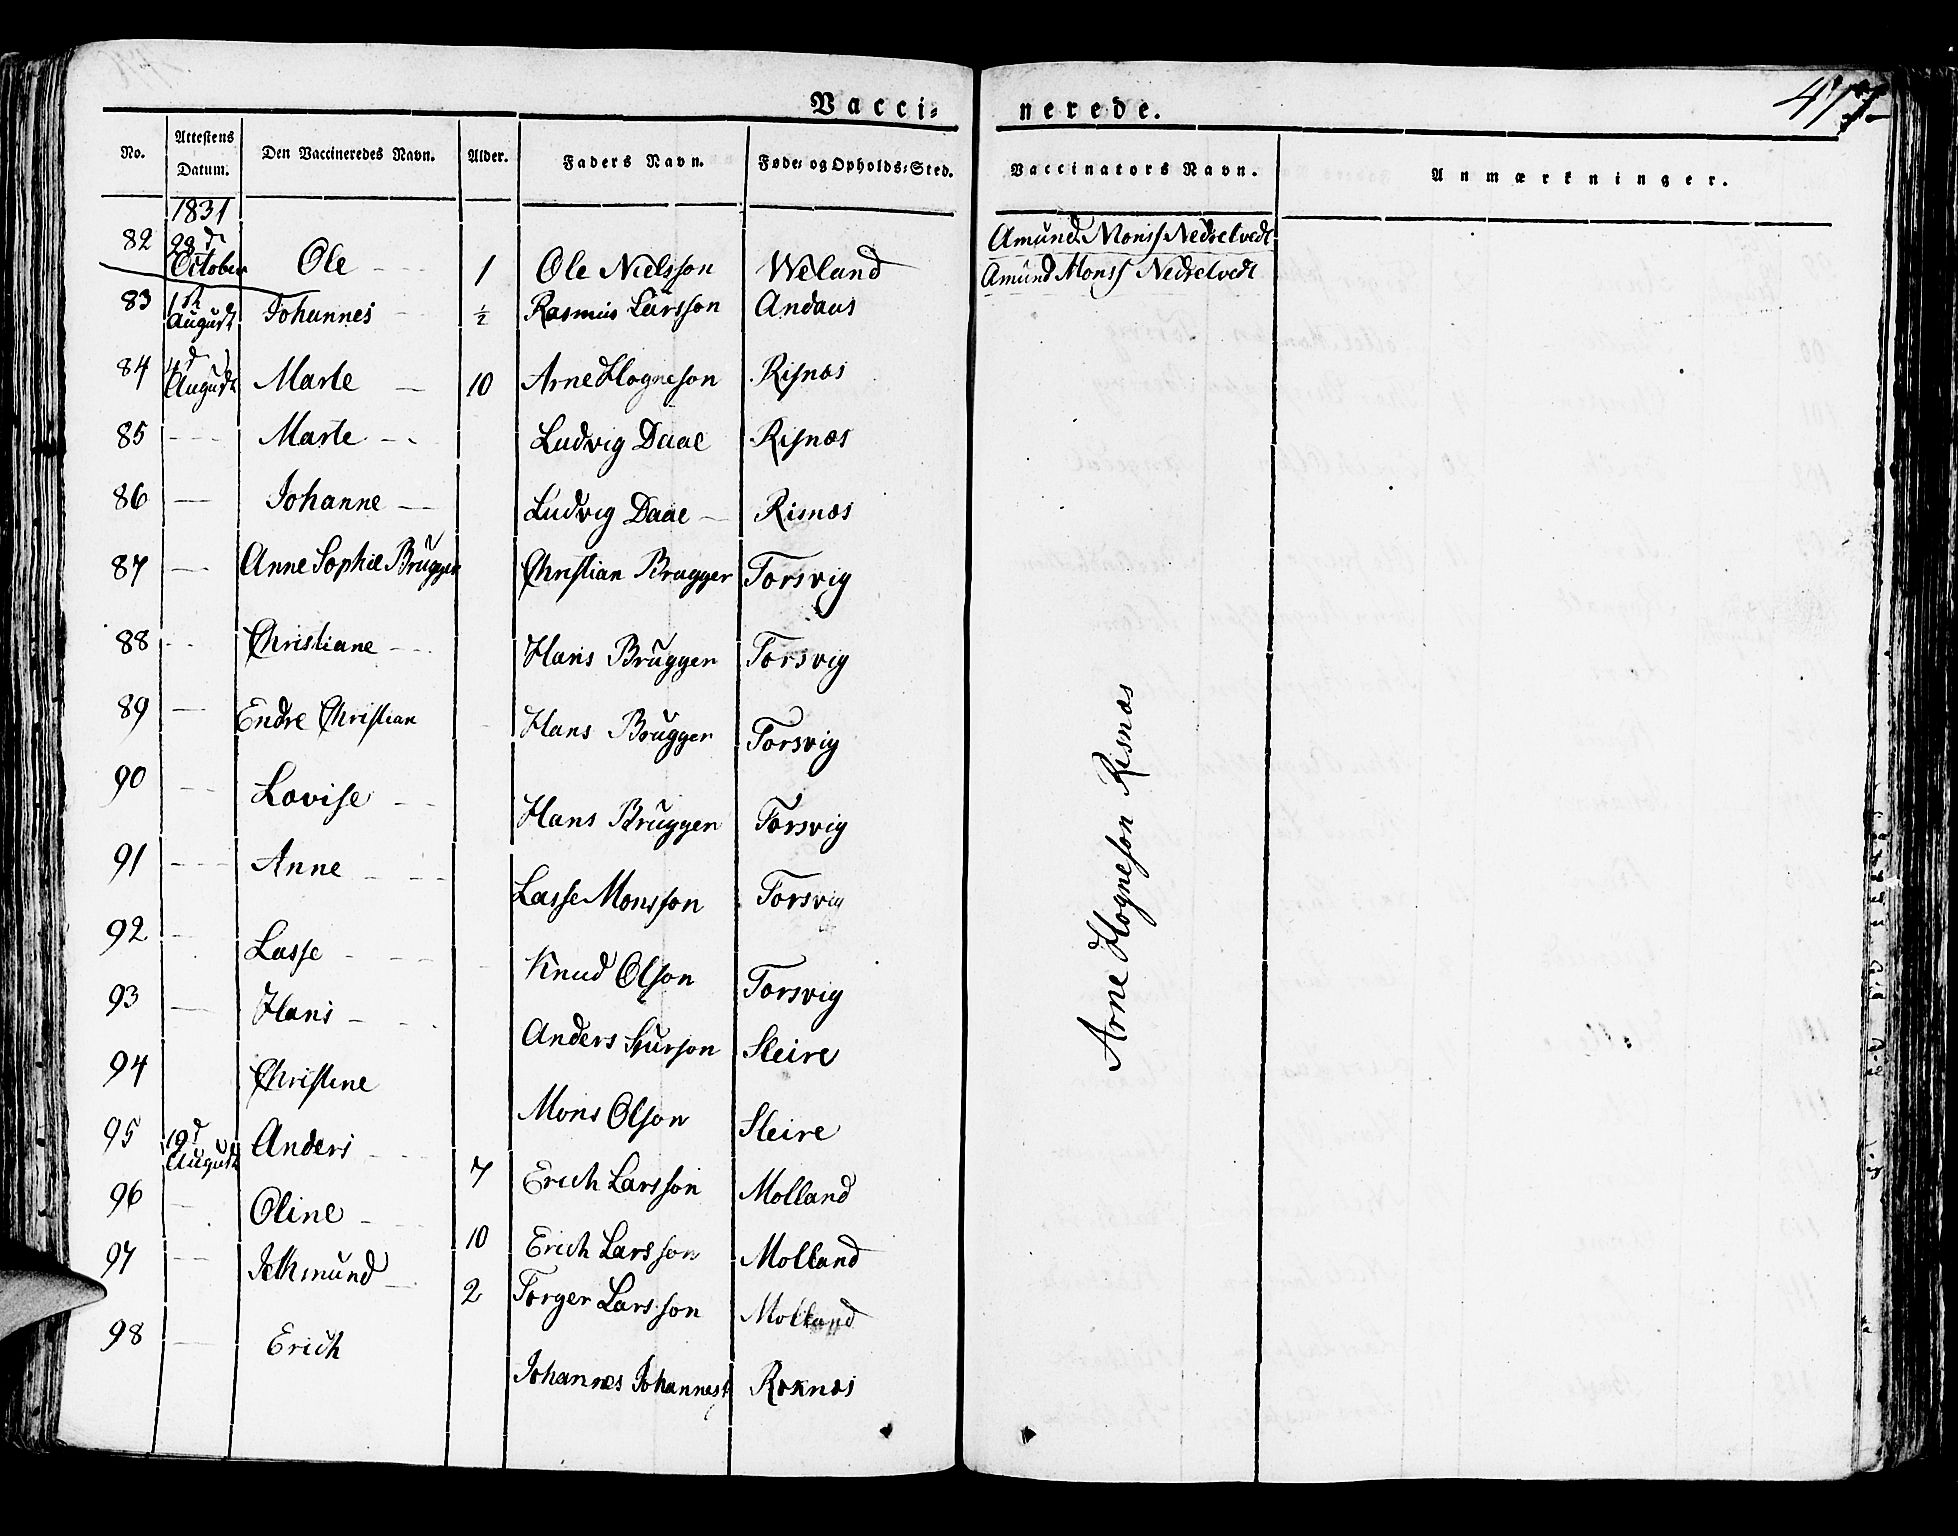 Vacci=nerede.
477
No. Attestens Datum. Den Vaccineredes Navn. Alder. Faders Navn. Føde= og Opholds=Sted. Vaccinators Navn. Anmærkninger.
1831
82 28d October Ole 1 Ole Nielsson Weland Amund Monss Nedretvedt
Amund Monss Nedretvedt
83 August Johannes ½ Rasmus Larsson Andaas
84 4d August Marte 10 Arne Hogneson Risnæs
85 Marte Ludvig Daae Risnæs
86 Johanne Ludvig Daae Risnæs
87 Anne Sophie Brügger Christian Brugger Torsvig
88 Christiane Hans Brügger Torsvig
89 Endre Christian Hans Brügger Torsvig
90 Lovise Hans Brügger Torsvig
91 Anne Lasse Monsson Torsvig
92 Lasse Knud Olson Torsvig
93 Hans Anders Sleire
94 Christine Mons Olson Sleire
95 19d August Anders 7 Erich Larsson Molland
96 Oline 10 Erich Larsson Molland
97 2 Torger Larsson Molland
98 Erich Johannes Johanness Roknæs
Arne Hogneson Risnæs